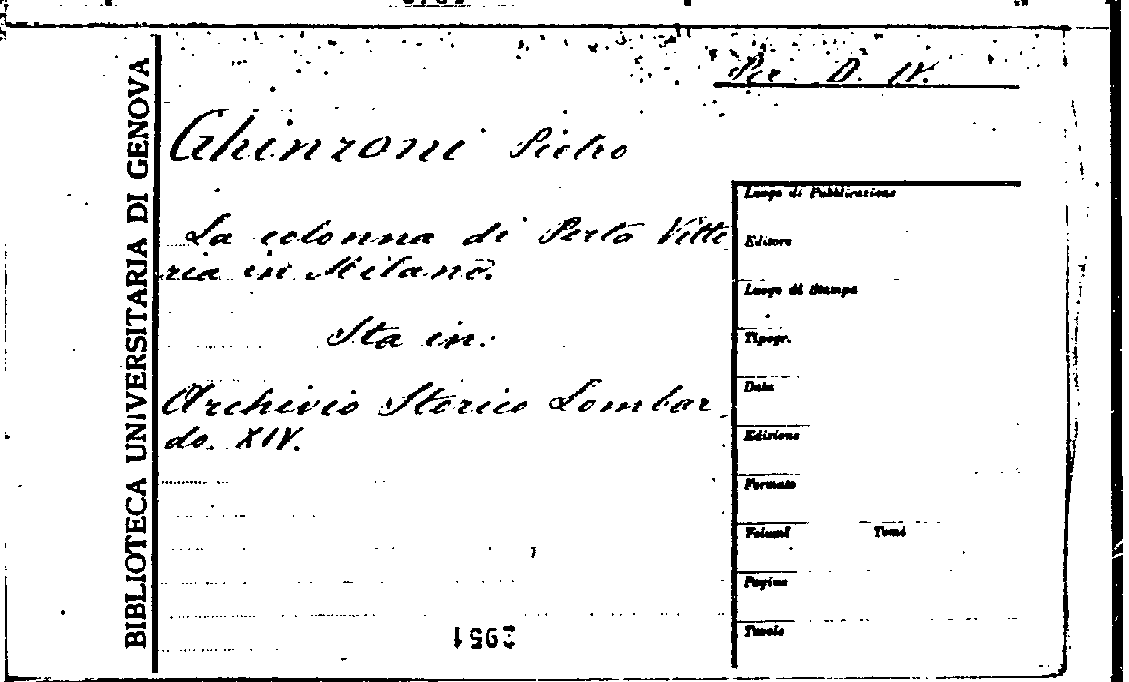 BIBLIOTECA UNIVERSITARIA DI GENOVA
Per. D. IV.
Ghinzoni Pietro
La colonna di Porta Vitto
ria in Milano.
Sta in:
Archivio Storico Lombar
do. XIV.
Luogo di Pubblicazione
Editore
Luogo di Stampa
Tipogr.
Data
Edizione
Formato
Volumi Tomi
Pagine
Tavole